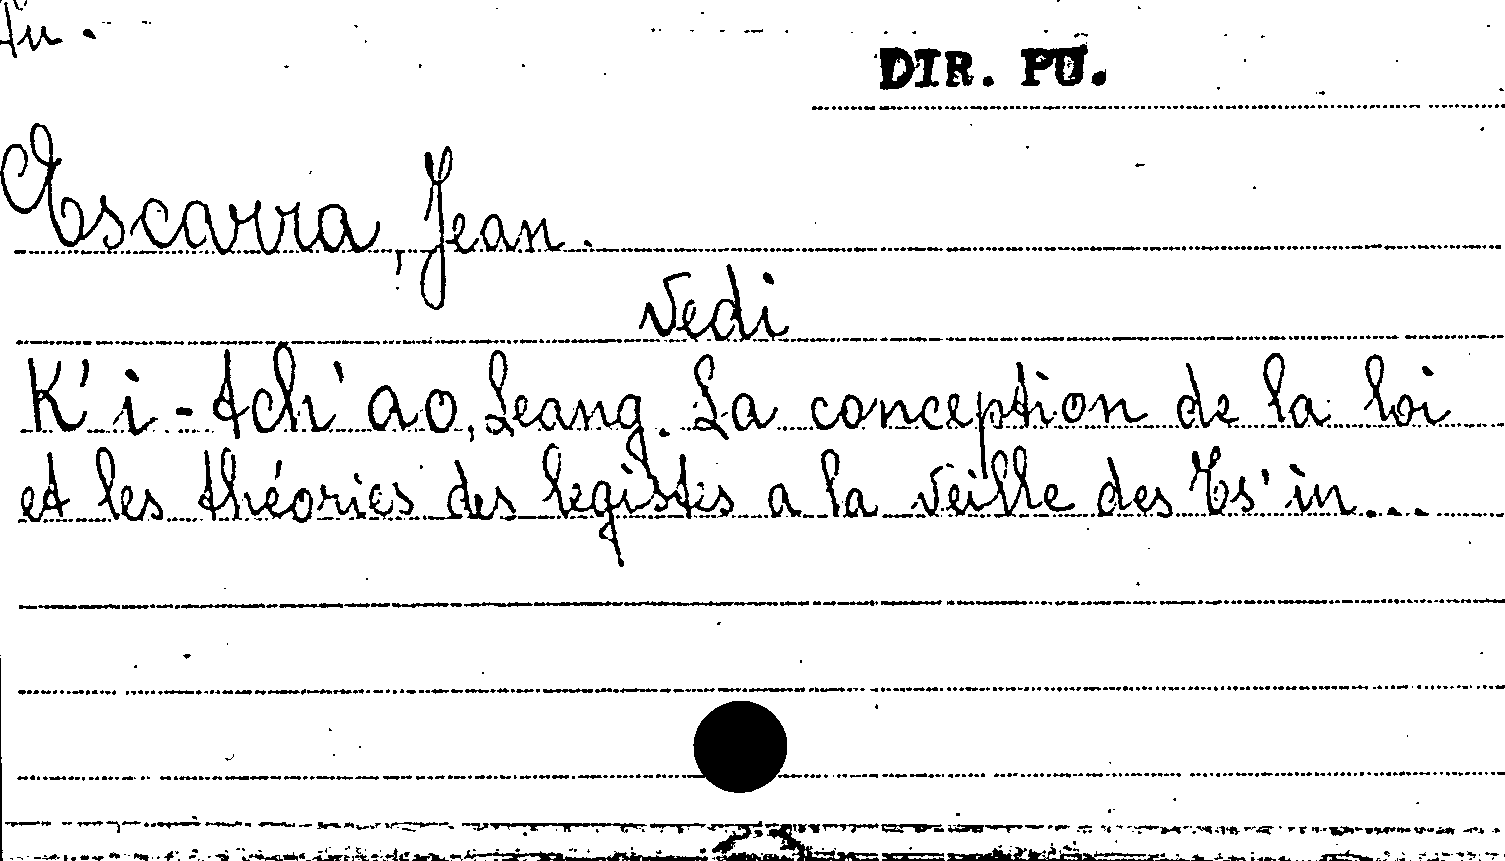 DIR. PU.
Escarra, Jean.
vedi
K'i-tch'ao, Leang. La conception de la loi
et les théories des legistes a la veille des Ts'in...